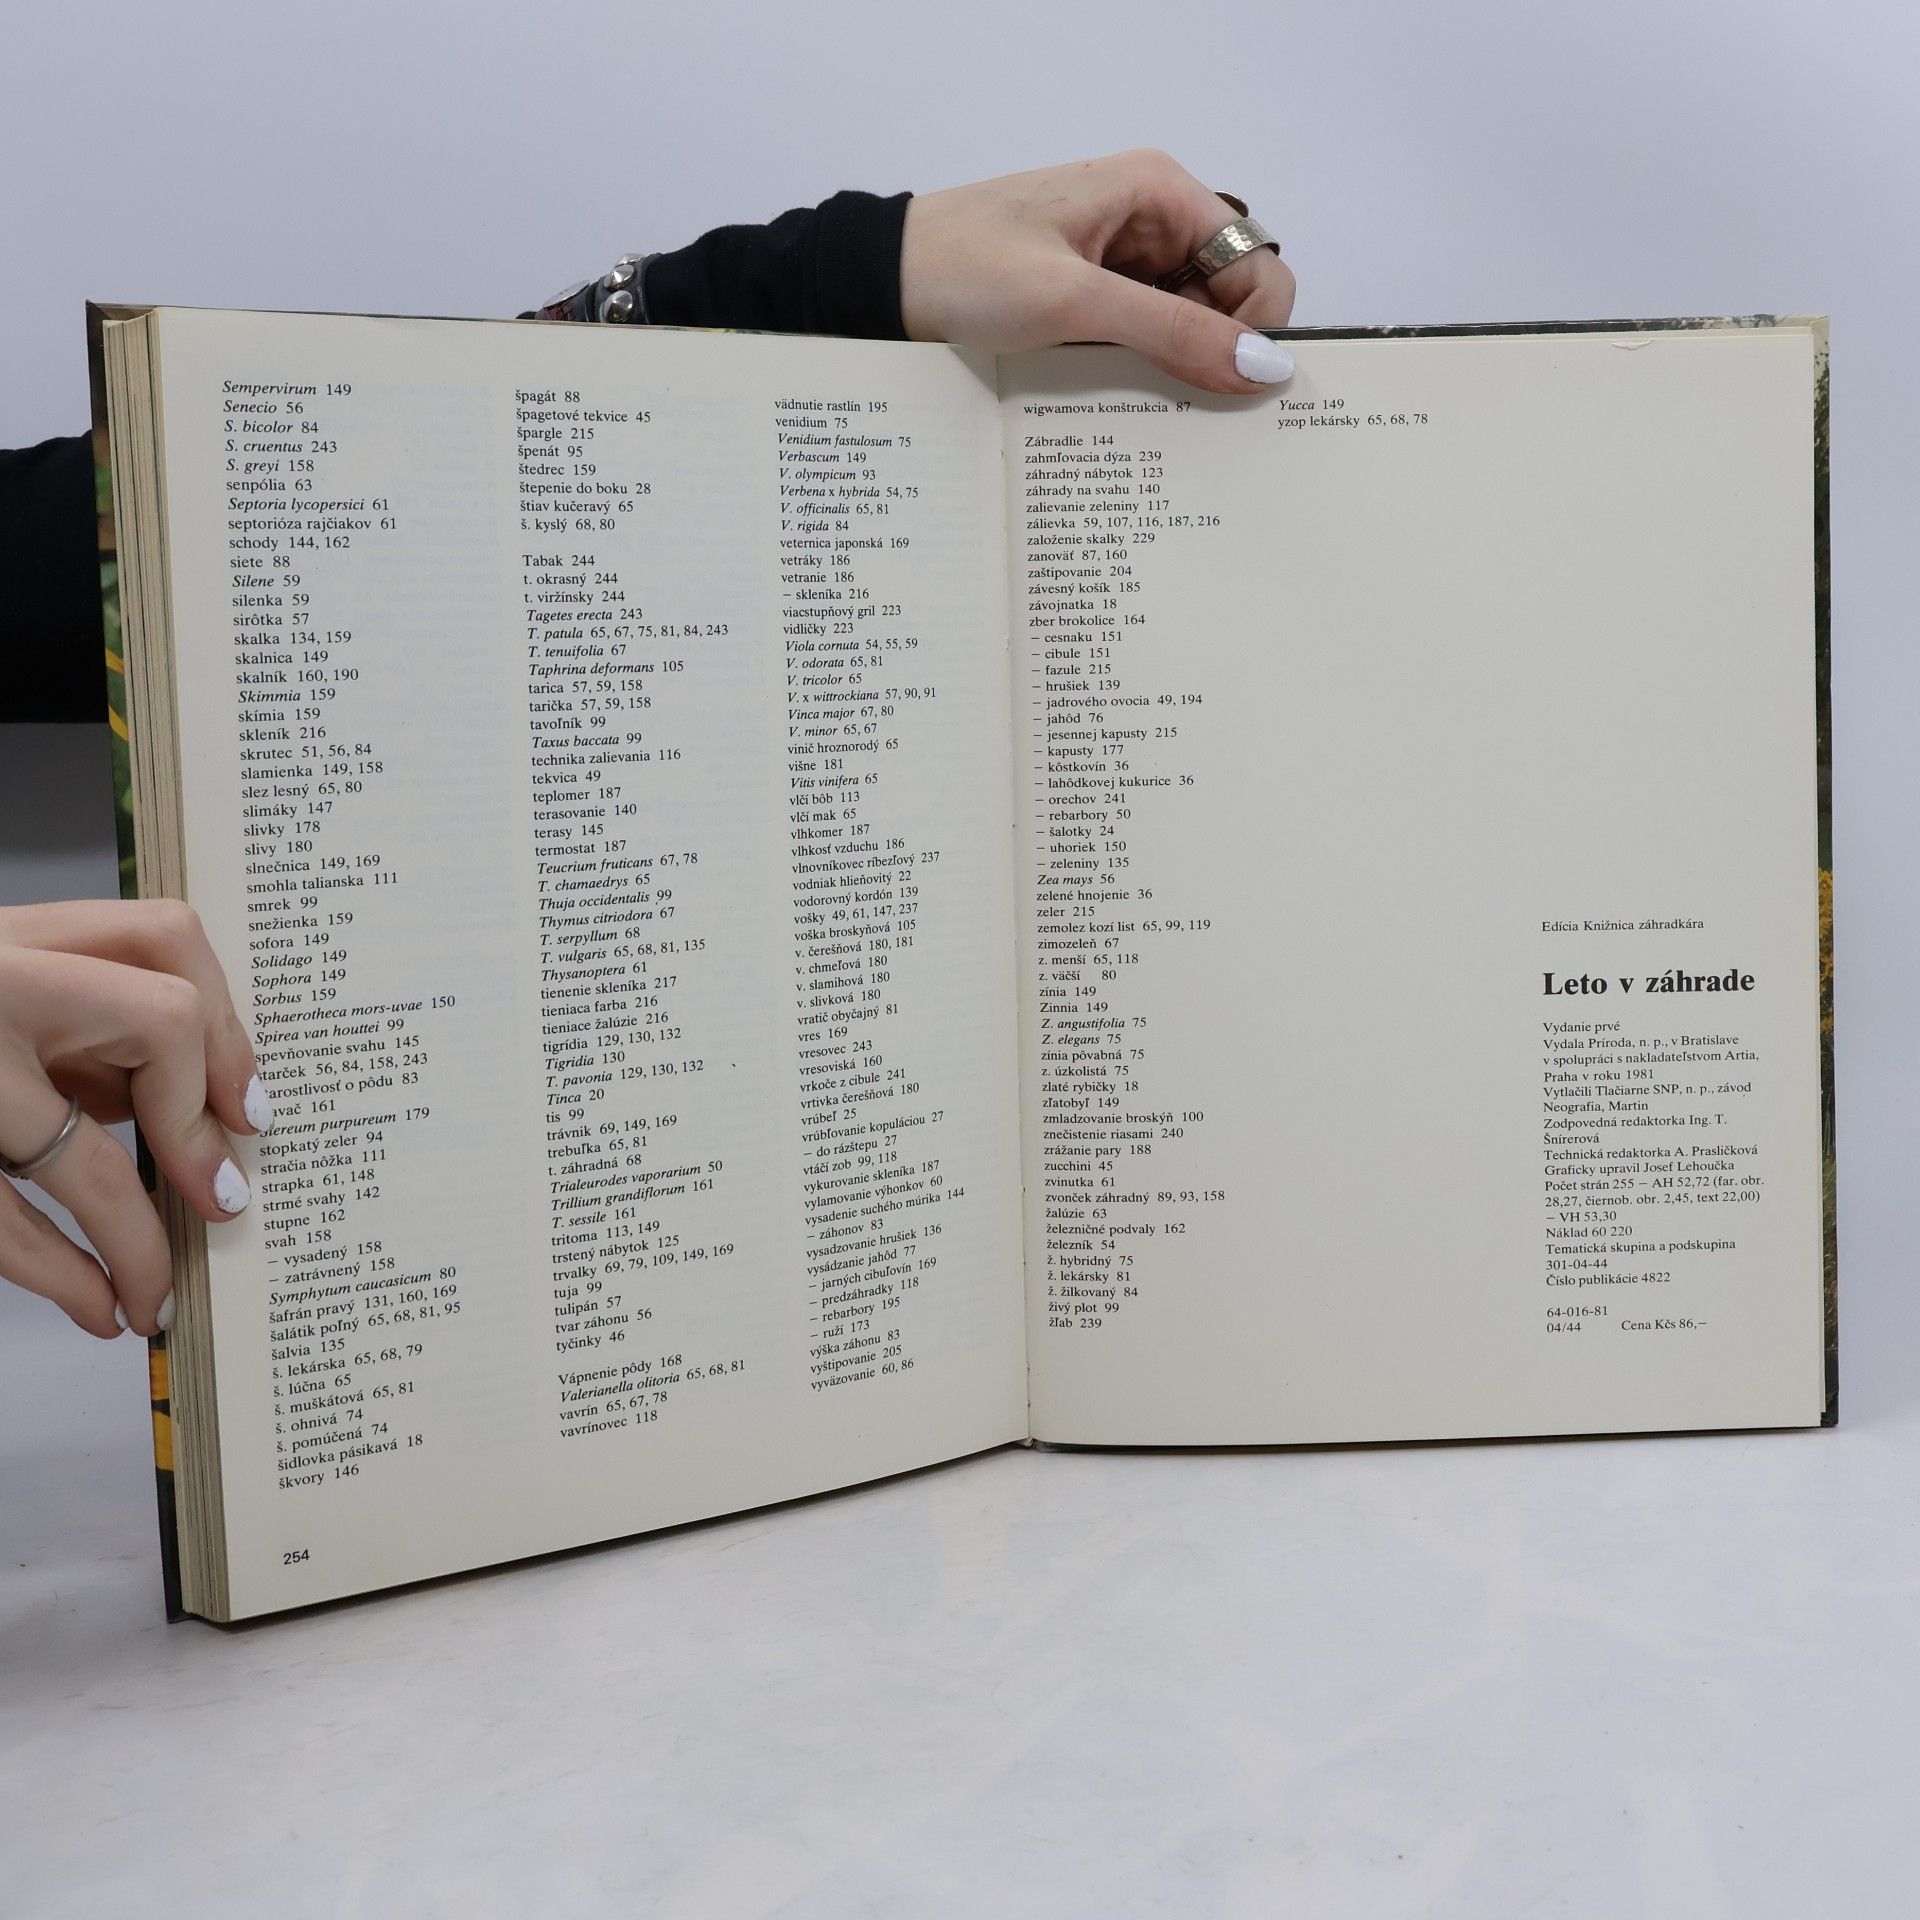 Sempervirum 149
Senecio 56
S. bicolor 84
S. cruentus 243
S. greyi 158
senpólia 63
Septoria lycopersici 61
septorióza rajčiakov 61
schody 144, 162
siete 88
Silene 59
silenka 59
sirôtka 57
skalka 134, 159
skalnica 149
skalník 160, 190
Skimmia 159
skímia 159
skleník 216
skrutec 51, 56, 84
slamienka 149, 158
slez lesný 65, 80
slimáky 147
slivky 178
slivy 180
slnečnica 149, 169
smohla talianska 111
smrek 99
snežienka 159
sofora 149
Solidago 149
Sophora 149
Sorbus 159
Sphaerotheca mors-uvae 150
Spirea van houttei 99
spevňovanie svahu 145
starček 56, 84, 158, 243
starostlivosť o pôdu 83
161
Stereum purpureum 179
stopkatý zeler 94
stračia nôžka 111
strapka 61, 148
strmé svahy 142
stupne 162
svah 158
– vysadený 158
– zatrávnený 158
Symphytum caucasicum 80
šafrán pravý 131, 160, 169
šalátik poľný 65, 68, 81, 95
šalvia 135
š. lekárska 65, 68, 79
š. lúčna 65
š. muškátová 65, 81
š. ohnivá 74
š. pomúčená 74
šidlovka pásikavá 18
škvory 146
254
špagát 88
špagetové tekvice 45
špargle 215
špenát 95
štedrec 159
štepenie do boku 28
štiav kučeravý 65
š. kyslý 68, 80
Tabak 244
t. okrasný 244
t. viržínsky 244
Tagetes erecta 243
T. patula 65, 67, 75, 81, 84, 243
T. tenuifolia 67
Taphrina deformans 105
tarica 57, 59, 158
tarička 57, 59, 158
tavoľník 99
Taxus baccata 99
technika zalievania 116
tekvica 49
teplomer 187
terasovanie 140
terasy 145
termostat 187
Teucrium fruticans 67, 78
T. chamaedrys 65
Thuja occidentalis 99
Thymus citriodora 67
T. serpyllum 68
T. vulgaris 65, 68, 81, 135
Thysanoptera 61
tienenie skleníka 217
tieniaca farba 216
tieniace žalúzie 216
tigrídia 129, 130, 132
Tigridia 130
T. pavonia 129, 130, 132
Tinca 20
tis 99
trávnik 69, 149, 169
trebuľka 65, 81
t. záhradná 68
Trialeurodes vaporarium 50
Trillium grandiflorum 161
T. sessile 161
tritoma 113, 149
trstený nábytok 125
trvalky 69, 79, 109, 149, 169
tuja 99
tulipán 57
tvar záhonu 56
tyčinky 46
Vápnenie pôdy 168
Valerianella olitoria 65, 68, 81
vavrín 65, 67, 78
vavrínovec 118
vädnutie rastlín 195
venidium 75
Venidium fastulosum 75
Verbascum 149
V. olympicum 93
Verbena x hybrida 54, 75
V. officinalis 65, 81
V. rigida 84
veternica japonská 169
vetráky 186
vetranie 186
– skleníka 216
viacstupňový gril 223
vidličky 223
Viola cornuta 54, 55, 59
V. odorata 65, 81
V. tricolor 65
V. x wittrockiana 57, 90, 91
Vinca major 67, 80
V. minor 65, 67
vinič hroznorodý 65
višne 181
Vitis vinifera 65
vlčí bôb 113
vlčí mak 65
vlhkomer 187
vlhkosť vzduchu 186
vlnovníkovec ríbezľový 237
vodniak hlieňovitý 22
vodorovný kordón 139
vošky 49, 61, 147, 237
voška broskyňová 105
v. čerešňová 180, 181
v. chmeľová 180
v. slamihová 180
v. slivková 180
vratič obyčajný 81
vres 169
vresovec 243
vresoviská 160
vrkoče z cibule 241
vrtivka čerešňová 180
vrúbeľ 25
vrúbľovanie kopuláciou 27
– do rázštepu 27
vtáčí zob 99, 118
vykurovanie skleníka 187
vylamovanie výhonkov 60
vysadenie suchého múrika 144
– záhonov 83
vysadzovanie hrušiek 136
vysádzanie jahôd 77
– jarných cibuľovín 169
– predzáhradky 118
– rebarbory 195
– ruží 173
výška záhonu 83
vyštipovanie 205
vyväzovanie 60, 86
wigwamova konštrukcia 87
Zábradlie 144
zahmľovacia dýza 239
záhradný nábytok 123
záhrady na svahu 140
zalievanie zeleniny 117
zálievka 59, 107, 116, 187, 216
založenie skalky 229
zanoväť 87, 160
zaštipovanie 204
závesný košík 185
závojnatka 18
zber brokolice 164
– cesnaku 151
– cibule 151
– fazule 215
– hrušiek 139
– jadrového ovocia 49, 194
– jahôd 76
– jesennej kapusty 215
– kapusty 177
– kôstkovín 36
– lahôdkovej kukurice 36
– orechov 241
– rebarbory 50
– šalotky 24
– uhoriek 150
– zeleniny 135
Zea mays 56
zelené hnojenie 36
zeler 215
zemolez kozí list 65, 99, 119
zimozeleň 67
z. menší 65, 118
z. väčší 80
zínia 149
Zinnia 149
Z. angustifolia 75
Z. elegans 75
zínia pôvabná 75
z. úzkolistá 75
zlaté rybičky 18
zľatobyľ 149
zmladzovanie broskýň 100
znečistenie riasami 240
zrážanie pary 188
zucchini 45
zvinutka 61
zvonček záhradný 89, 93, 158
žalúzie 63
železničné podvaly 162
železník 54
ž. hybridný 75
ž. lekársky 81
ž. žilkovaný 84
živý plot 99
žľab 239
Yucca 149
yzop lekársky 65, 68, 78
Edícia Knižnica záhradkára
Leto v záhrade
Vydanie prvé
Vydala Príroda, n. p., v Bratislave
v spolupráci s nakladateľstvom Artia,
Praha v roku 1981
Vytlačili Tlačiarne SNP, n. p., závod
Neografia, Martin
Zodpovedná redaktorka Ing. T.
Šnírerová
Technická redaktorka A. Prasličková
Graficky upravil Josef Lehoučka
Počet strán 255 – AH 52,72 (far. obr.
28,27, čiernob. obr. 2,45, text 22,00)
– VH 53,30
Náklad 60 220
Tematická skupina a podskupina
301-04-44
Číslo publikácie 4822
64-016-81
04/44 Cena Kčs 86,–